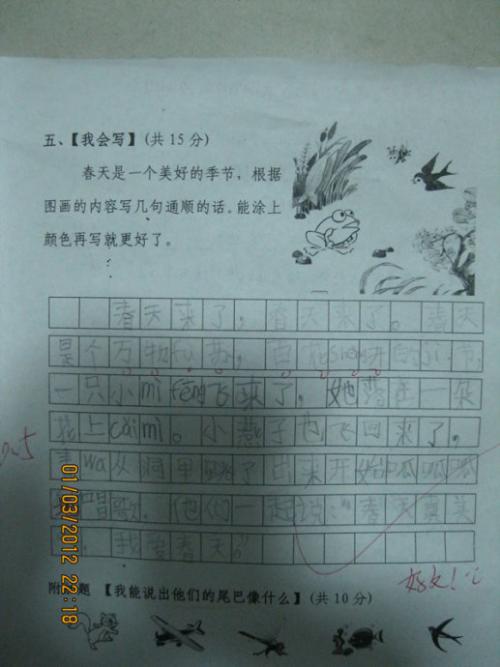 五、【我会写】(共15分)
春天是一个美好的季节,根据
图画的内容写几句通顺的话。能涂上
颜色再写就更好了。
春天来了,春天来了。春天
是个万物fu苏,百花的季节,
一只小mì fēng飞来了,她落在一朵
花上cǎi mì。小燕子也飞回来了,
青wa从洞里出来开始呱呱呱
地唱歌。他们一起说:“春天真美
我爱春天。
好文!
附题 【我能说出他们的尾巴像什么】(共10分)
01/03/2012 22:18